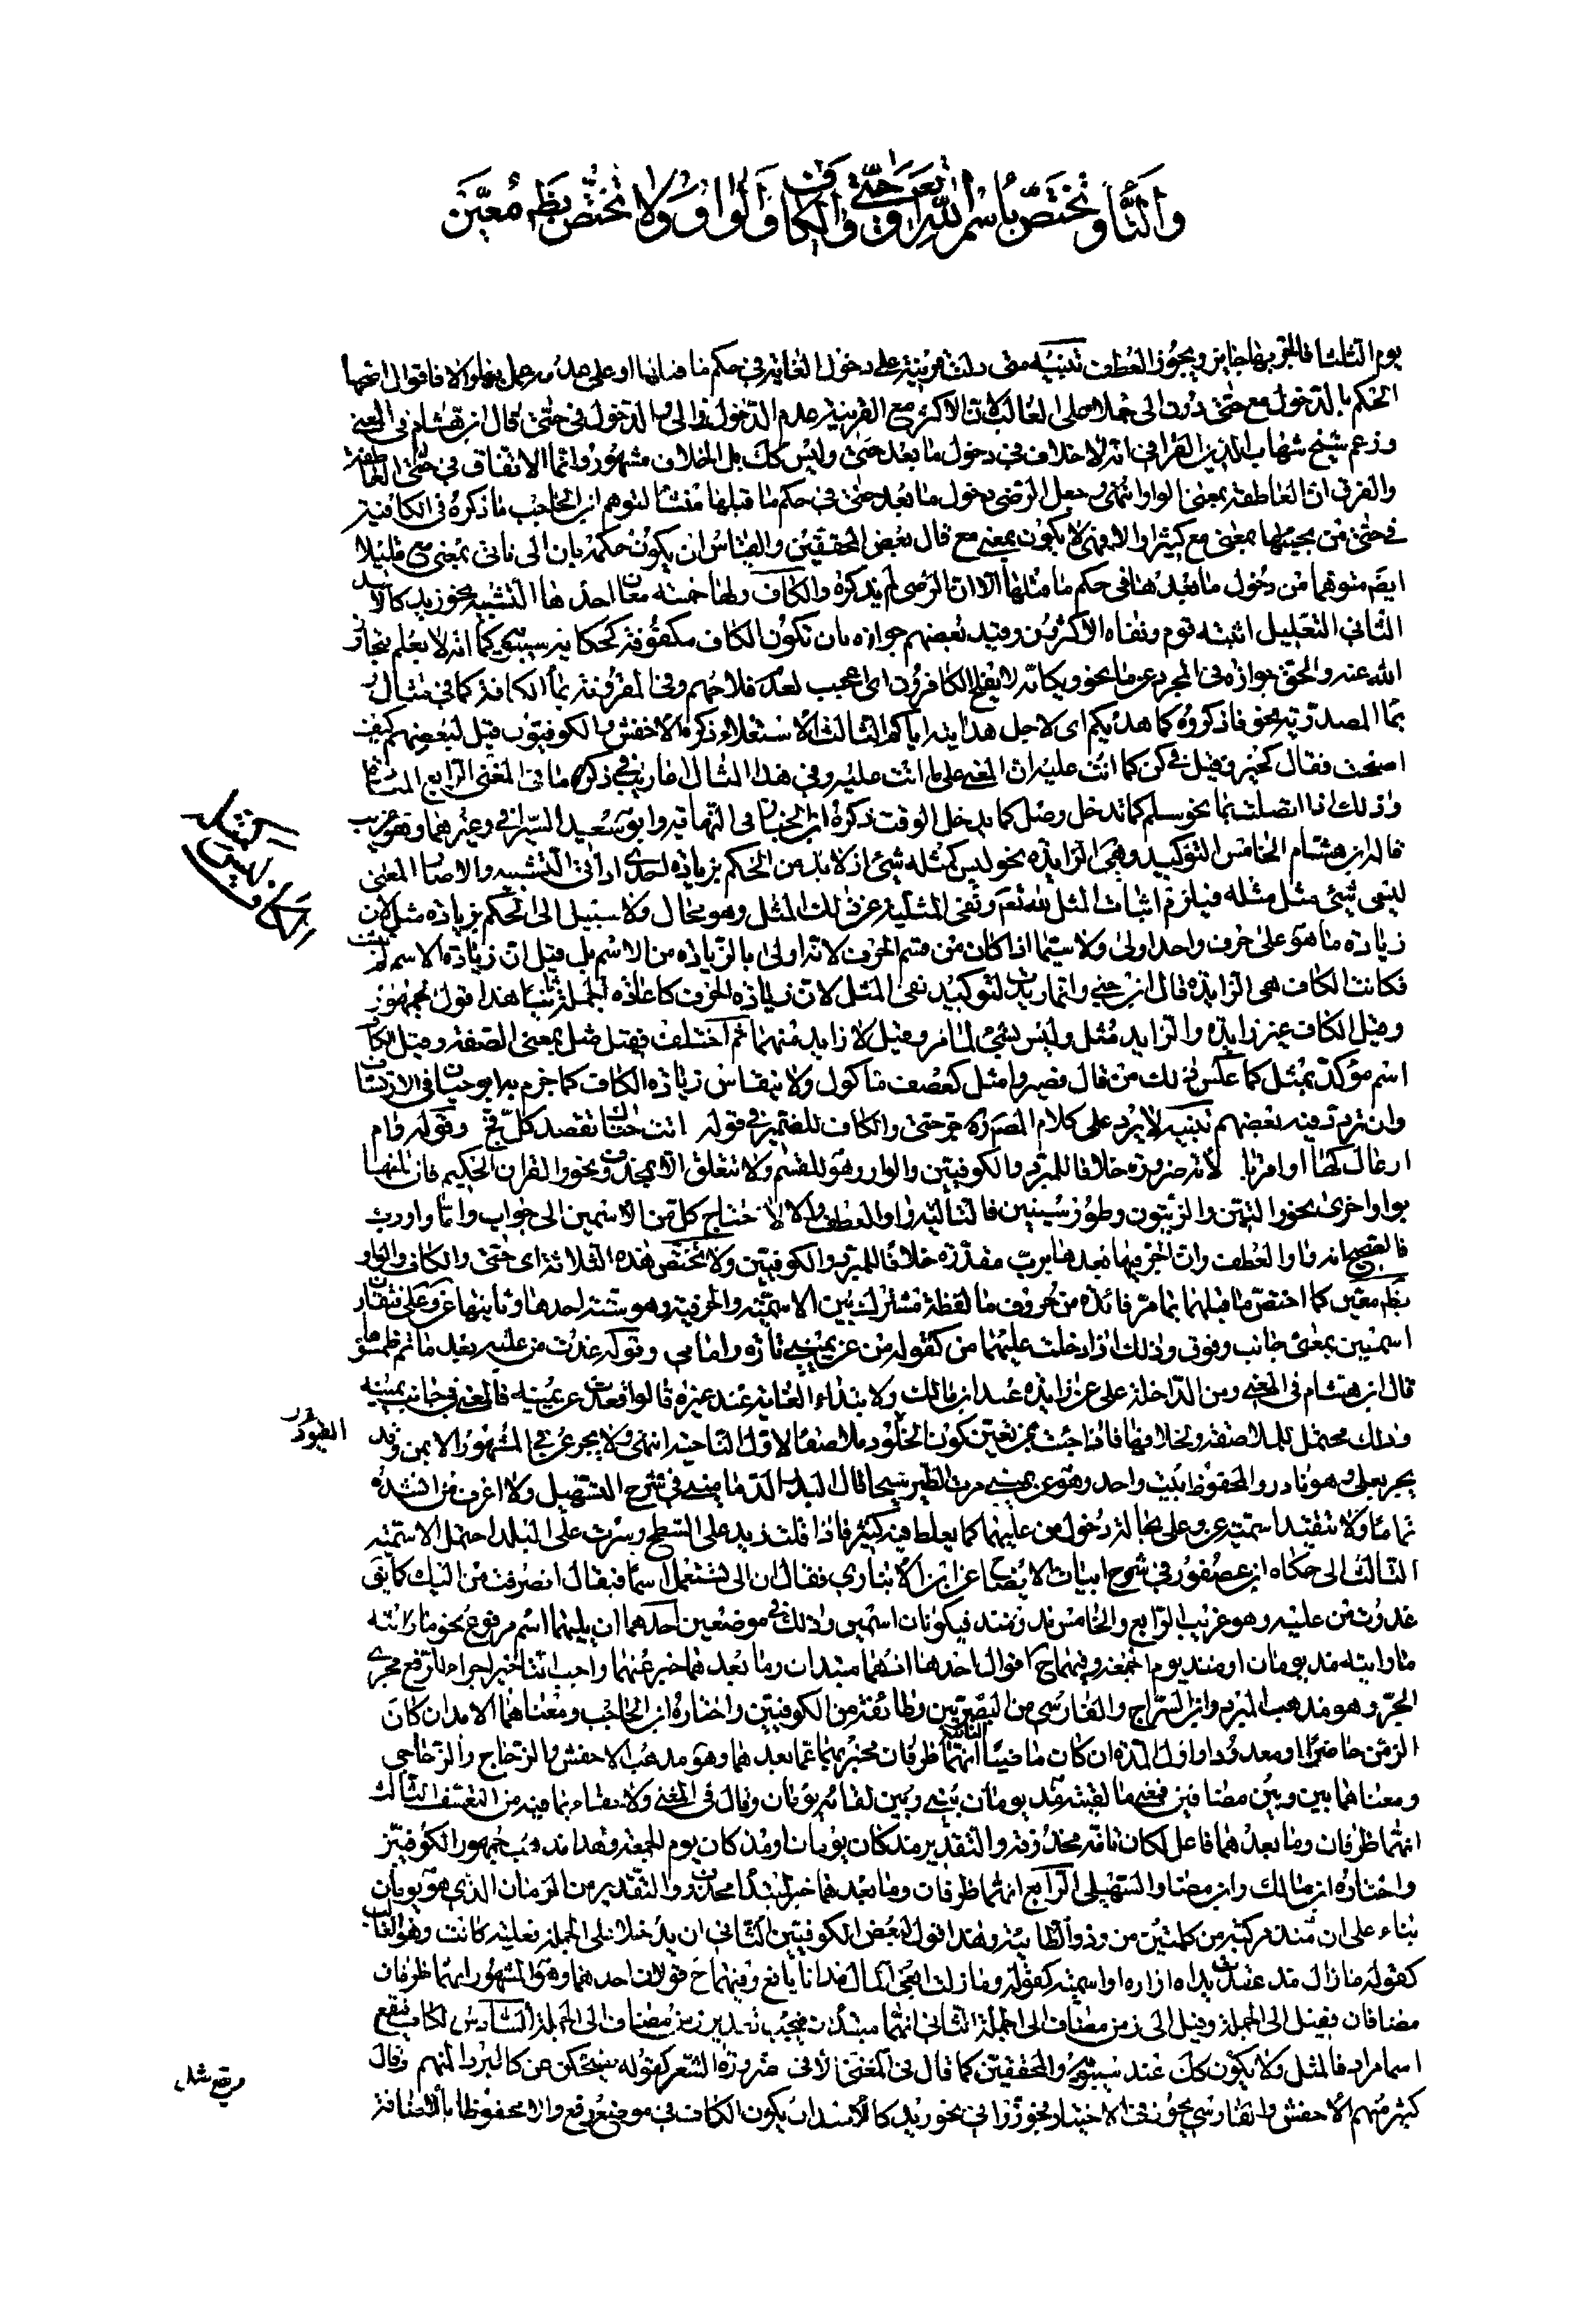 والتاء وتختص باسم الله تعالى وحتى والكاف والواو ولا تختص بظاهر معين
يوم الثلثا فالجر بها جايز ويجوز العطف تنبيه متى دلت قرينة على دخول الغاية في حكم ما قبلها او على عدمه عمل بها والا فاقوال اصحها
الحكم بالدخول مع حتى دون الى حملا على الغالب لان الاكثر مع القرينة عدم الدخول في الى والدخول في حتى قال ابن هشام في المغني
وزعم شيخ شهاب الدين القرافي انه لا خلاف في دخول ما بعد حتى وليس كك بل الخلاف مشهور وانما الاتفاق في حتى العاطفة
والفرق ان العاطفة بمعنى الواو انتهى وجعل الرضى دخول ما بعد حتى في حكم ما قبلها منشأ لتوهم ابن الحاجب ما ذكره في الكافية
في حتى من مجيئها بمعنى مع كثيرا والا فهي لا يكون بمعنى مع قال بعض المحققين والقياس ان يكون حكمه بان الى تاتى بمعنى مع قليلا
ايضا متوهما من دخول ما بعدها في حكم ما قبلها الا ان الرضى لم يذكره والكاف ولها خمسة معان احدها التشبيه نحو زيد كالاسد
الثاني التعليل اثبته قوم ونفاه الاكثرون وقيد بعضهم جوازه بان تكون الكاف مكفوفة كحكاية سيبويه كما انه لا يعلم فتجاوز
الله عنه والحق جوازه في المجرد عن ما نحو ويكانه لا يفلح الكافرون اى اعجب لعدم فلاحهم وفي المقرونة بما الكافة كما في مثال
بما المصدرية نحو فاذكروه كما هديكم اى لاجل هدايته اياكم الثالث الاستعلاء ذكره الاخفش والكوفيون قيل لبعضهم كيف
اصبحت فقال كخير وقيل في كن كما انت عليه ان المعنى على ما انت عليه وفي هذا المثال اعاريب في ذكره ما في المغني الرابع المبادرة
وذلك اذا اتصلت بما نحو سلم كما تدخل وصل كما يدخل الوقت ذكره ابن الخباز في النهاية وابو سعيد السيرافي وغيرهما وهو غريب
قاله ابن هشام الخامس التوكيد وهي الزايدة نحو ليس كمثله شيئ اذ لا بد من الحكم بزيادة احدى اداتى التشبيه والا صار المعنى
ليس شيئ مثل مثله فيلزم اثبات المثل لله تعم ونفى المثلية عن ذلك المثل وهو محال ولا سبيل الى الحكم بزيادة مثل لان
زيادة ما هو على حرف واحد اولى ولا سيما اذا كان من قسم الحرف لانه اولى بالزيادة من الاسم بل قيل ان زيادة الاسم لم تثبت
فكانت الكاف هي الزايدة قال ابن جني وانما زيدت لتوكيد نفى المثل لان زيادة الحرف كاعادة الجملة ثانيا هذا قول الجمهور
وقيل الكاف غير زايدة والزايد مثل وليس بشئ لما مر وقيل لا زايد منهما ثم اختلف فقيل مثل بمعنى الصفة وقيل الكاف
اسم مؤكد بمثل كما عكس ذلك من قال فصيروا مثل كعصف ماكول ولا ينقاس زيادة الكاف كما جزم به ابو حيان في الارتشاف
وان تردد فيه بعضهم تنبيه لا يرد على كلام المصنف جر حتى والكاف للضمير في قوله اتت حتاك تقصد كل فج وقوله وام
اوعال كها او اقربا لانه ضرورة خلافا للمبرد والكوفيين والواو وهو للقسم ولا تتعلق الا بمحذوف نحو والقران الحكيم فان تلتها
بواو اخرى نحو والتين والزيتون وطور سينين فالتالية واو العطف والا لاحتاج كل من الاسمين الى جواب واما واو رب
فالصحيح انه واو العطف وان الجر فيما بعدها برب مقدرة خلافا للمبرد والكوفيين ولا تختص هذه الثلاثة اى حتى والكاف والواو
بظم معين كما اختص ما قبلهما بما مر فائدة من حروف ما لفظه مشترك بين الاسمية والحرفية وهو ستة احدها وثانيها عن وعلى فيقعان
اسمين بمعنى جانب وفوق وذلك اذا دخلت عليهما من كقوله من عن يميني تارة وامامي وقوله غدت من عليه بعد ما تم ظمئها
قال ابن هشام في المغني ومن الداخلة على عن زايدة عند ابن مالك ولابتداء الغاية عند غيره قالوا فقعدت عن يمينه فالمعنى في جانب يمينه
وذلك محتمل للملاصقة ولخلافها فاذا جئت بمن تعين كون القعود ملاصقا لاول الناحية انتهى ولا يجر عن في المشهور الا بمن وقد
يجر بعلى وهو نادر والمحفوظ بيت واحد وهو على عن يميني مرت الطير سنحا قال البدر الدماميني في شرح التسهيل ولا اعرف من انشده
تماما ولا تتقيد اسمية عن وعلى بحالة دخول من عليهما كما يغلط فيه كثير فاذا قلت زيد على السطح وسرت على البلد احتمل الاسمية
الثالث الى حكاه ابن عصفور في شرح ابيات الايضاح عن ابن الانباري فقال ان الى تستعمل اسما فيقال انصرفت من اليك كما يقال
غدوت من عليه وهو غريب الرابع والخامس مذ ومنذ فيكونان اسمين وذلك في موضعين احدهما ان يليهما اسم مرفوع نحو ما رايته
ما رايته مذ يومان او منذ يوم الجمعة وفيهما ح اقوال احدها انهما مبتدان وما بعدهما خبر عنهما واجب التاخير اجراء للرفع مجرى
الجر وهو مذهب المبرد وابن السراج والفارسي من البصريين وطائفة من الكوفيين واختاره ابن الحاجب ومعناهما الامد ان كان
الزمن حاضرا او معدودا واول المدة ان كان ماضيا الثانى انهما ظرفان مخبر بهما عما بعدهما وهو مذهب الاخفش والزجاج والزجاجي
ومعناهما بين وبين مضافين فمعنى ما لقيته مذ يومان بيني وبين لقائه يومان وقال في المغني ولا خفاء بما فيه من التعسف الثالث
انهما ظرفان وما بعدهما فاعل لكان تامة محذوفة والتقدير مذ كان يومان او مذ كان يوم الجمعة وهذا مذهب جمهور الكوفيين
واختاره ابن مالك وابن مضا والسهيلي الرابع انهما ظرفان وما بعدهما خبر لمبتدا محذوف والتقدير من الزمان الذى هو يومان
بناء على ان منذ مركبة من كلمتين من وذو الطائية وهذا قول لبعض الكوفيين الثاني ان يدخلا على الجملة فعلية كانت وهو الغالب
كقوله ما زال مذ عقدت يداه ازاره او اسمية كقوله وما زلت ابغى المال مذ انا يافع وفيهما ح قولان احدهما وهو المشهور انهما ظرفان
مضافان فقيل الى الجملة وقيل الى زمن مضاف الى الجملة الثاني انهما مبتدان فيجب تقدير زمن مضاف الى الجملة السادس الكاف فيقع
اسما مرادفا لمثل ولا يكون كك عند سيبويه والمحققين كما قال في المغني الا في ضرورة الشعر كقوله يضحكن عن كالبرد المنهم وقال
كثير منهم الاخفش والفارسي يجوز في الاختيار فجوزوا في نحو زيد كالاسد ان يكون الكاف في موضع رفع والاسد محفوظا بالاضافة
القعود